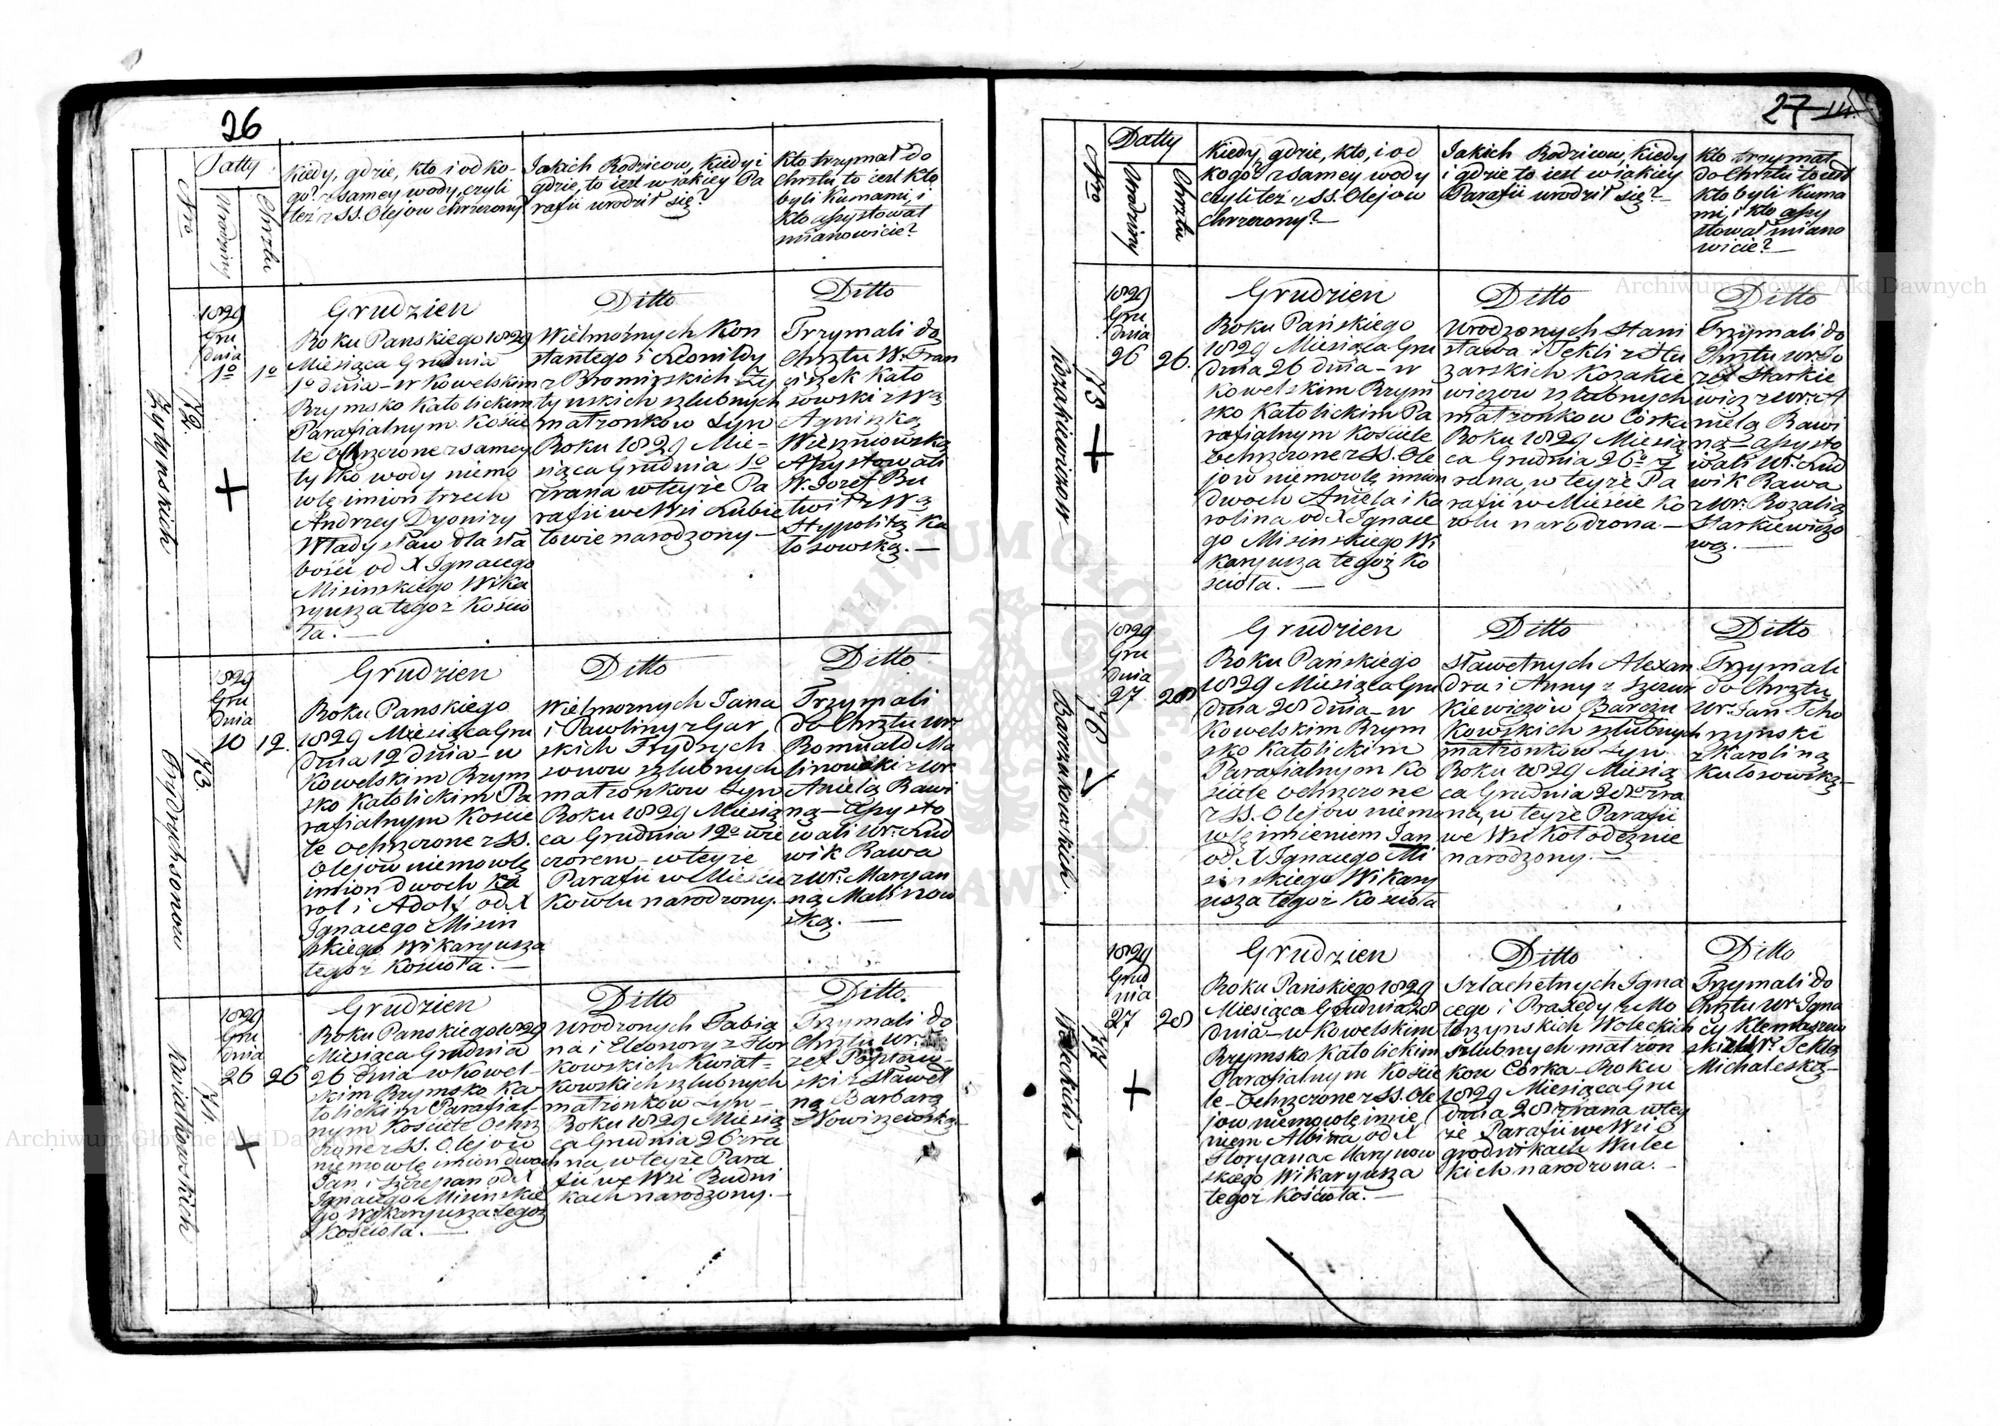 26
Datty
Nro
Urodziny
Chrztu
Kiedy, gdzie, kto i od ko-
go? z samey wody, czyli
też z SS. Olejow chrzczony
Jakich Rodzicow, kiedy i
gdzie, to iest w iakiey Pa
rafii urodził się?
Kto trzymał do
Chrztu, to iest kto
byli Kumami, i
kto assystował
mianowicie?
72.
Żytynskich
1829
Gru
dnia
1o
1o
Grudzien
Roku Panskiego 1829
Miesiąca Grudnia
1o dnia - w Kowelskim
Rzymsko Katolickim
Parafialnym Kościе
le Ochrzczone z samey
tylko wody niemo
wlę imion trzech
Andrzey Dyonizy
Władysław dla sła
bości od X Ignacego
Misinskiego Wika
ryusza tegoż Kościo
ła. —
Ditto
Wielmożnych Kon
stantego i Leonildy
z Bromirskich Ży
tynskich szlubnych
małżonkow Syn
Roku 1829 Mie-
siąca Grudnia 1o
zrana w teyże Pa
rafii we Wsi Lubie
towie narodzony —
Ditto
Trzymali do
Chrztu W. Fran
ciszek Kało
sowski z Wą
Agnieszką
Wiszniowską
Assystowali
W. Jozef Bu
twiłł z Wą
Hyppolitą Ka
łosowską. —
73.
Frydrychsonow
1829
Gru
dnia
10
12.
Grudzien
Roku Panskiego
1829 Miesiąca Gru
dnia 12 dnia - w
Kowelskim Rzym
sko Katolickim Pa
rafialnym Koscie
le ochrzczone z SS.
Olejow niemowlę
imion dwoch Ka
rol i Adolf od X
Ignacego Misin
skiego Wikaryusza
tegoż Kościoła. —
Ditto
Wielmożnych Jana
i Pawliny z Gar
skich Frydrych
sonow szlubnych
małżonkow Syn
Roku 1829 Miesią
ca Grudnia 12o wie
czorem - w teyże
Parafii w Mieście
Kowlu narodzony. —
Ditto
Trzymali
do Chrztu Ur.
Romuald Ma
linowski z Ur.
Anielą Rawi
ną - Assysto
wali Ur. Lud
wik Rawa
z Ur. Maryan
ną Malinow
ską. —
74.
Kwiatkowskich
1829
Gru
dnia
26
26
Grudzien
Roku Panskiego 1829
Miesiąca Grudnia
26 dnia w Kowel-
skim Rzymsko Ka
tolickim Parafial-
nym Kościele Ochrz
czone z SS. Olejow
niemowlę imion dwoch
Jan i Szczepan od X
Ignacego Misinskie
go Wikaryusza tegoż
Kościoła. —
Ditto
Urodzonych Fabia
na i Eleonory z Flor
kowskich Kwiat-
kowskich szlubnych
małżonków Syn -
Roku 1829 Miesią
ca Grudnia 26 zra
na, w teyże Para
fii we Wsi Rudni
kach narodzony. —
Ditto.
Trzymali do
Chrztu Ur.
zef
ski z Sławet
ną Barbarą
27
Nro
Datty
Urodziny
Chrztu
Kiedy, gdzie, kto, i od
kogo? z samey wody
czyli też z SS. Olejow
chrzczony? —
Jakich Rodzicow, kiedy
i gdzie to iest w iakiey
Parafii urodził się? —
Kto trzymał
do Chrztu to iest
kto byli Kuma
mi, i kto assy
stował miano
wicie? —
75
Kozakiewiczow
1829
Gru
dnia
26
26.
Grudzien
Roku Pańskiego
1829 Miesiąca Gru
dnia 26 dnia - w
Kowelskim Rzym
sko Katolickim Pa
rafialnym Kościele
Ochrzczone z SS. Ole
jow niemowlę imion
dwoch Aniela i Ka
rolina od X Ignace
go Misinskiego Wi
karyusza tegoż Ko
ścioła. —
Ditto
Urodzonych Stani
sława i Tekli z Słu
zarskich Kozakie
wiczow szlubnych
małżonkow Córka
Roku 1829 Miesią
ca Grudnia 26o z
rana, w teyże Pa
rafii w Mieście Ko
wlu narodzona —
Ditto
Trzymali do
Chrztu Ur. Jo
zef Starkie
wicz z Ur. A
nielą Rawi
ną - assysto
wali Ur. Lud
wik Rawa
z Ur. Rozalią
Starkiewiczo
wą. —
76
Barczukowskich
1829
Gru
dnia
27
28
Grudzien
Roku Pańskiego
1829 Miesiąca Gru
dnia 28 dnia - w
Kowelskim Rzym
sko Katolickim
Parafialnym Ko
ściele ochrzczone
z SS. Olejow niemo
wlę imieniem Jan
od X Ignacego Mi
sinskiego Wikary
usza tegoż Kościoła
Ditto
Sławetnych Alexan
dra i Anny z Szczur
kiewiczów Barczu
kowskich szlubnych
małżonków Syn
Roku 1829 Miesią
ca Grudnia 28o zra
na, w teyże Parafii
we Wsi Kołodeżnie
narodzony. —
Ditto
Trzymali
do Chrztu
Ur. Jan Tcho
rzynski
z Karoliną
Kulosowską —
77
Woleckich
1829
Grud
nia
27
28
Grudzien
Roku Pańskiego 1829
Miesiąca Grudnia 28
dnia - w Kowelskim
Rzymsko Katolickim
Parafialnym Koście
le - Ochrzczone z SS. Ole
jow niemowlę imie
niem Albina, od X
Floryana Marynow
skiego Wikaryusza
tegoż Kościoła. —
Ditto
Szlachetnych Igna
cego i Praxedy z Mo
krzynskich Woleckich
szlubnych małżon
kow Córka - Roku
1829 Miesiąca Gru
dnia 28 zrana w tey
że Parafii we Wsi O
grodnikach Wulec
kich narodzona. —
Ditto
Trzymali do
Chrztu Ur. Igna
cy Klemaszew
ski z Ur. Teklą
Michaleską —
Archiwum Główne Akt Dawnych
Archiwum Główne Akt Dawnych
ARCHIWUM GŁÓWNE AKT DAWNYCH